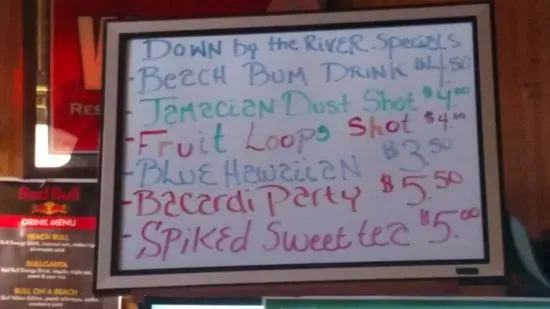 Down by the River Specials
- Beach Bum Drink $4.50
- Jamacian Dust Shot $4.00
- Fruit Loops Shot $4.00
- Blue Hawaiian $3.50
- Bacardi Party $5.50
- Spiked Sweet tea $5.00
Res
Red Bull
DRINK MENU
BEACH BULL
BULLGARITA
BULL ON A BEACH